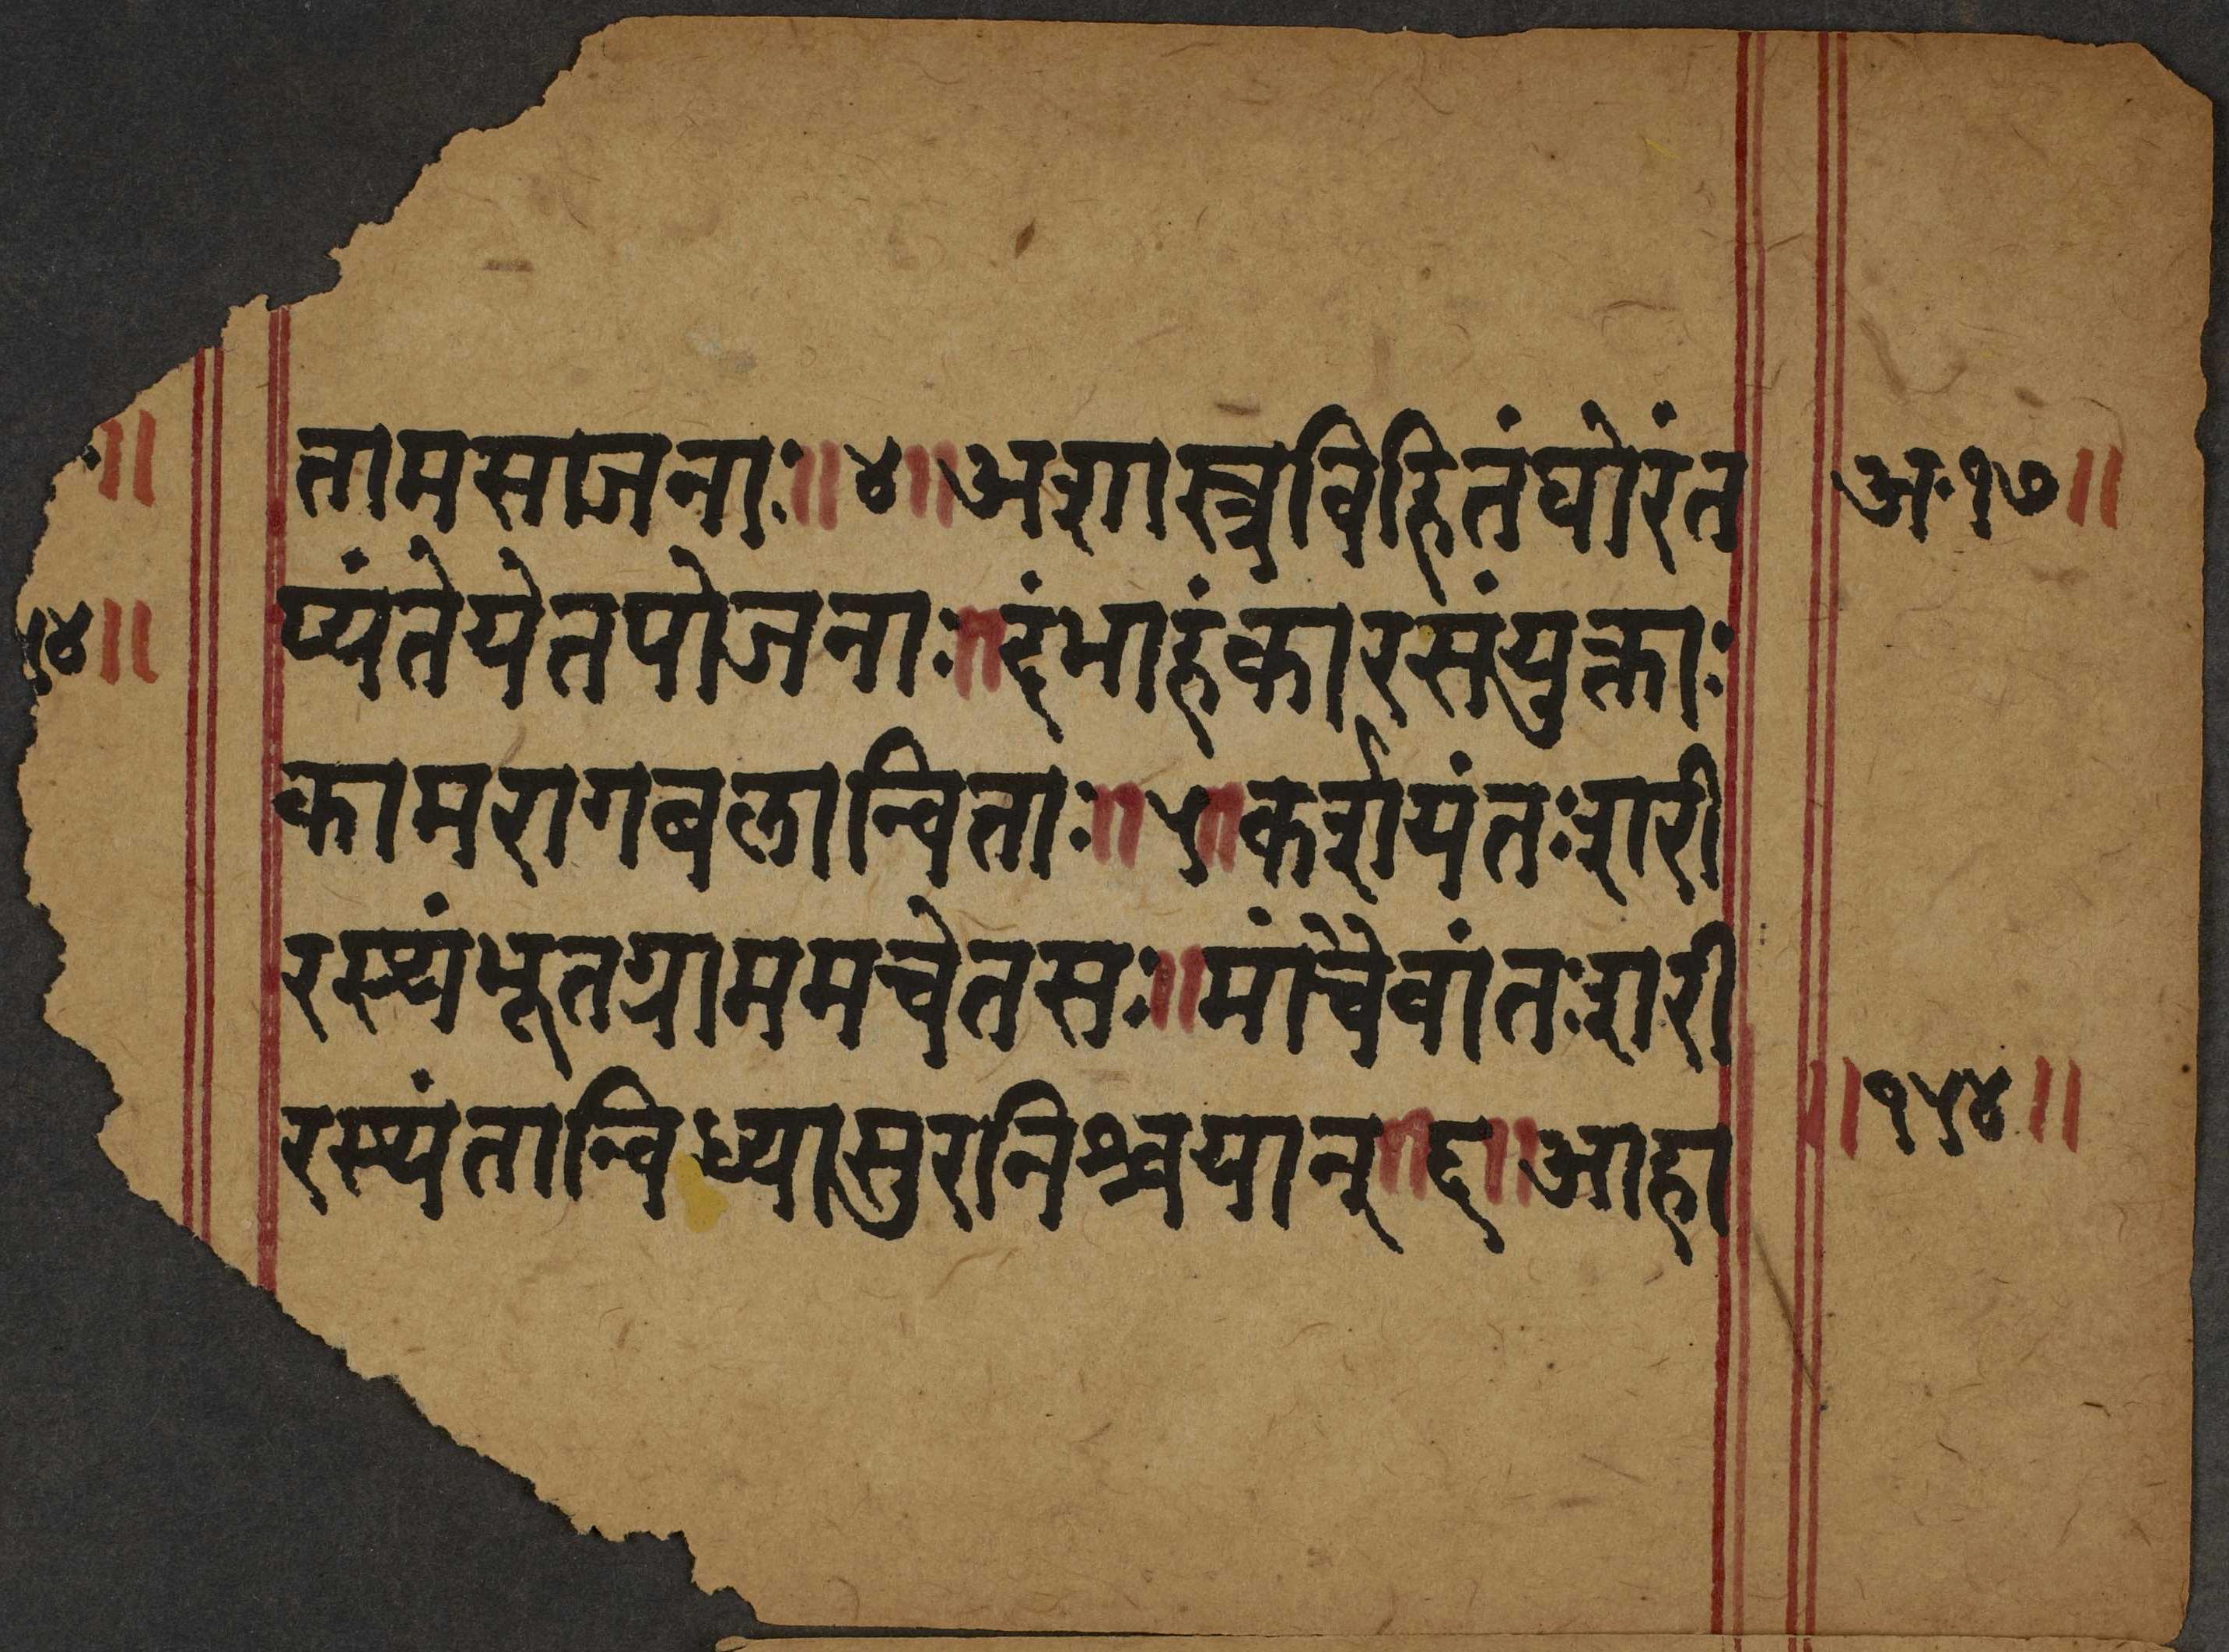 तामसाजनाः॥४॥अशास्त्रविहितंघोरंत
प्यंतेयेतपोजनाः॥दंभाहंकारसंयुक्ताः
कामरागबलान्विताः॥५॥कर्शयंतःशरी
रस्थंभूतग्राममचेतसः॥मांचैवांतःशरी
रस्थंतान्विध्यासुरनिश्चयान्॥६॥आहा
अ॰१७॥
॥१५४॥